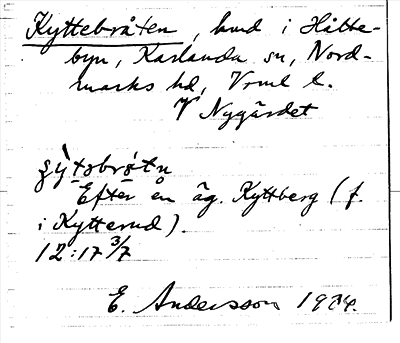 Kyttebråten, hmd i Håltebyn, Karlanda sn, Nord-
marks hd, Vrml l.
V Nygärdet
Efter en äg. Kyttberg (f.
i Kytterud).
12:17 3/7
E. Andersson 1934.